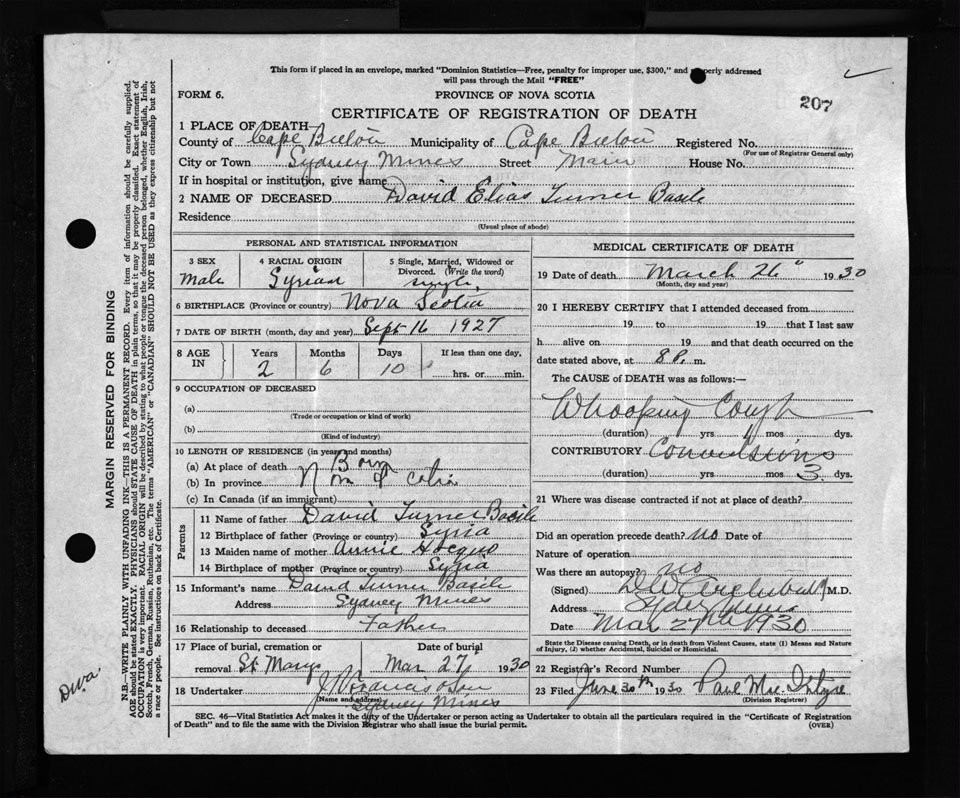 This form if placed in an envelope, marked "Dominion Statistics—Free, penalty for improper use, $300," and properly addressed
will pass through the Mail "FREE"
FORM 6.
PROVINCE OF NOVA SCOTIA
207
CERTIFICATE OF REGISTRATION OF DEATH
1 PLACE OF DEATH
County of Cape Breton Municipality of Cape Breton Registered No.
(For use of Registrar General only)
City or Town Sydney Mines Street Main House No.
If in hospital or institution, give name
2 NAME OF DECEASED David Elias Turner Basile
Residence
(Usual place of abode)
PERSONAL AND STATISTICAL INFORMATION
3 SEX 4 RACIAL ORIGIN 5 Single, Married, Widowed or
Divorced. (Write the word)
male Syrian single
6 BIRTHPLACE (Province or country) Nova Scotia
7 DATE OF BIRTH (month, day and year) Sept 16 1927
8 AGE IN Years Months Days If less than one day,
2 6 10 hrs. or min.
9 OCCUPATION OF DECEASED
(a)
(Trade or occupation or kind of work)
(b)
(Kind of industry)
10 LENGTH OF RESIDENCE (in years and months)
(a) At place of death Born
(b) In province
(c) In Canada (if an immigrant)
Parents
11 Name of father David Turner Basile
12 Birthplace of father (Province or country) Syria
13 Maiden name of mother Annie
14 Birthplace of mother (Province or country) Syria
15 Informant's name David Turner Basile
Address Sydney Mines
16 Relationship to deceased Father
17 Place of burial, cremation or Date of burial
removal St Marys Mar 27 1930
18 Undertaker J Francis & Son
(Name and address)
Sydney Mines
MEDICAL CERTIFICATE OF DEATH
19 Date of death March 26" 1930
(Month, day and year)
20 I HEREBY CERTIFY that I attended deceased from
19 to 19 that I last saw
h alive on 19 and that death occurred on the
date stated above, at 8 P. m.
The CAUSE of DEATH was as follows:—
Whooping Cough
(duration) yrs mos dys.
CONTRIBUTORY Convulsions
(duration) yrs mos 3 dys.
21 Where was disease contracted if not at place of death?
Did an operation precede death? no Date of
Nature of operation
Was there an autopsy? no
(Signed) Archibald M.D.
Address Sydney Mines
Date Mar 27th 1930
State the Disease causing Death, or in death from Violent Causes, state (1) Means and Nature
of Injury, (2) whether Accidental, Suicidal or Homicidal.
22 Registrar's Record Number
23 Filed June 30th 1930 Paul Mc Intyre
(Division Registrar)
SEC. 46—Vital Statistics Act makes it the duty of the Undertaker or person acting as Undertaker to obtain all the particulars required in the "Certificate of Registration
of Death" and to file the same with the Division Registrar who shall issue the burial permit.
(OVER)
MARGIN RESERVED FOR BINDING
N.B.—WRITE PLAINLY WITH UNFADING INK—THIS IS A PERMANENT RECORD. Every item of information should be carefully supplied.
AGE should be stated EXACTLY. PHYSICIANS should STATE CAUSE OF DEATH in plain terms, so that it may be properly classified. Exact statement of
OCCUPATION is very important. RACIAL ORIGIN will be described by stating to what people or tongue the deceased person belonged, whether English, Irish,
Scotch, French, German, Russian, Ruthenian, etc. The terms "AMERICAN" or "CANADIAN" SHOULD NOT BE USED as they express citizenship but not
a race or people. See instructions on back of Certificate.